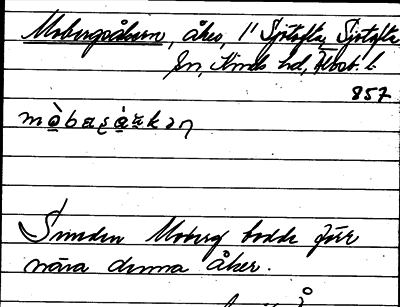 Mobergsåkern, åker, 1/1 Sjötofta, Sjötofta
sn, Kinds hd, Älvsb. l.
857
Smeden Moberg bodde förr
nära denna åker.